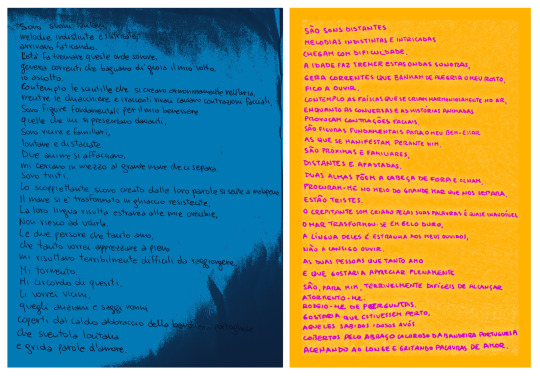 Sono suoni lontani
melodie indistinte e intricate,
arrivano faticando.
L'età fa tremare queste onde sonore,
genera correnti che bagnano di gioia il mio volto.
io ascolto.
Contemplo le scintille che si creano armoniosamente nell'aria,
mentre le chiacchiere e i racconti vivaci causano contrazioni facciali.
Sono figure fondamentali per il mio benessere
quelle che mi si presentano davanti.
Sono vicine e familiari,
lontane e distaccate.
Due anime si affacciano,
mi cercano in mezzo al grande mare che ci separa.
Sono tristi.
Lo scoppiettante suono creato dalle loro parole si sente a malapena.
Il mare si è trasformato in ghiaccio resistente,
La loro lingua risulta estranea alle mie orecchie,
Non riesco ad udirla.
Le due persone che tanto amo,
che tanto vorrei apprezzare a pieno
mi risultano terribilmente difficili da raggiungere.
Mi tormento.
Mi circondo di quesiti.
Li vorrei vicini,
quegli anziani e saggi nonni
coperti dal caldo abbraccio della bandiera portoghese
che sventola lontana
e grida parole d'amore.
SÃO SONS DISTANTES
MELODIAS INDISTINTAS E INTRICADAS
CHEGAM COM DIFICULDADE.
A IDADE FAZ TREMER ESTAS ONDAS SONORAS,
GERA CORRENTES QUE BANHAM DE ALEGRIA O MEU ROSTO,
FICO A OUVIR.
CONTEMPLO AS FAÍSCAS QUE SE CRIAM HARMONIOSAMENTE NO AR,
ENQUANTO AS CONVERSAS E AS HISTÓRIAS ANIMADAS
PROVOCAM CONTRAÇÕES FACIAIS.
SÃO FIGURAS FUNDAMENTAIS PARA O MEU BEM-ESTAR
AS QUE SE MANIFESTAM PERANTE MIM.
SÃO PRÓXIMAS E FAMILIARES,
DISTANTES E AFASTADAS.
DUAS ALMAS PÕEM A CABEÇA DE FORA E OLHAM.
PROCURAM-ME NO MEIO DO GRANDE MAR QUE NOS SEPARA.
ESTÃO TRISTES.
O CREPITANTE SOM CRIADO PELAS SUAS PALAVRAS É QUASE INAUDÍVEL
O MAR TRASFORMOU-SE EM GELO DURO,
A LÍNGUA DELES É ESTRANHA AOS MEUS OUVIDOS,
NÃO A CONSIGO OUVIR.
AS DUAS PESSOAS QUE TANTO AMO
E QUE GOSTARIA APRECIAR PLENAMENTE
SÃO, PARA MIM, TERRIVELMENTE DIFÍCEIS DE ALCANÇAR
ATORMENTO-ME.
RODEIO-ME DE PERGUNTAS,
GOSTARIA QUE ESTIVESSEM PERTO,
AQUELES SABIDOS IDOSOS AVÓS
COBERTOS PELO ABRAÇO CALOROSO DA BANDEIRA PORTUGUESA
ACENANDO AO LONGE E GRITANDO PALAVRAS DE AMOR.